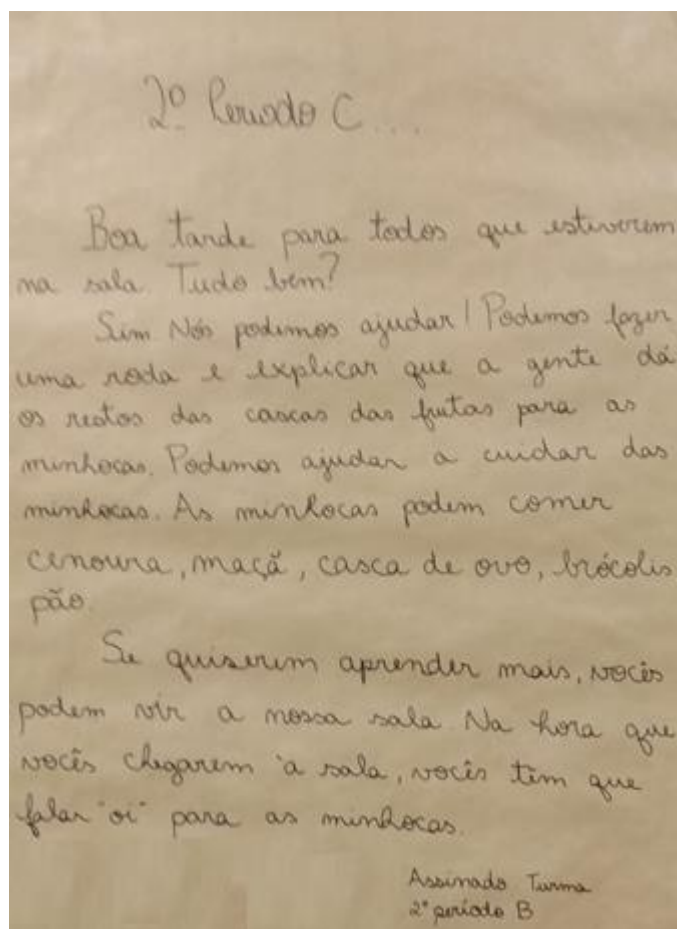 2º Período C...
Boa tarde para todos que estiverem
na sala. Tudo bem?
Sim Nós podemos ajudar! Podemos fazer
uma roda e explicar que a gente dá
os restos das cascas das frutas para as
minhocas. Podemos ajudar a cuidar das
minhocas. As minhocas podem comer
cenoura, maçã, casca de ovo, brócolis
pão.
Se quiserem aprender mais, vocês
podem vir a nossa sala. Na hora que
vocês chegarem à sala, vocês têm que
falar "oi" para as minhocas.
Assinado Turma
2º período B